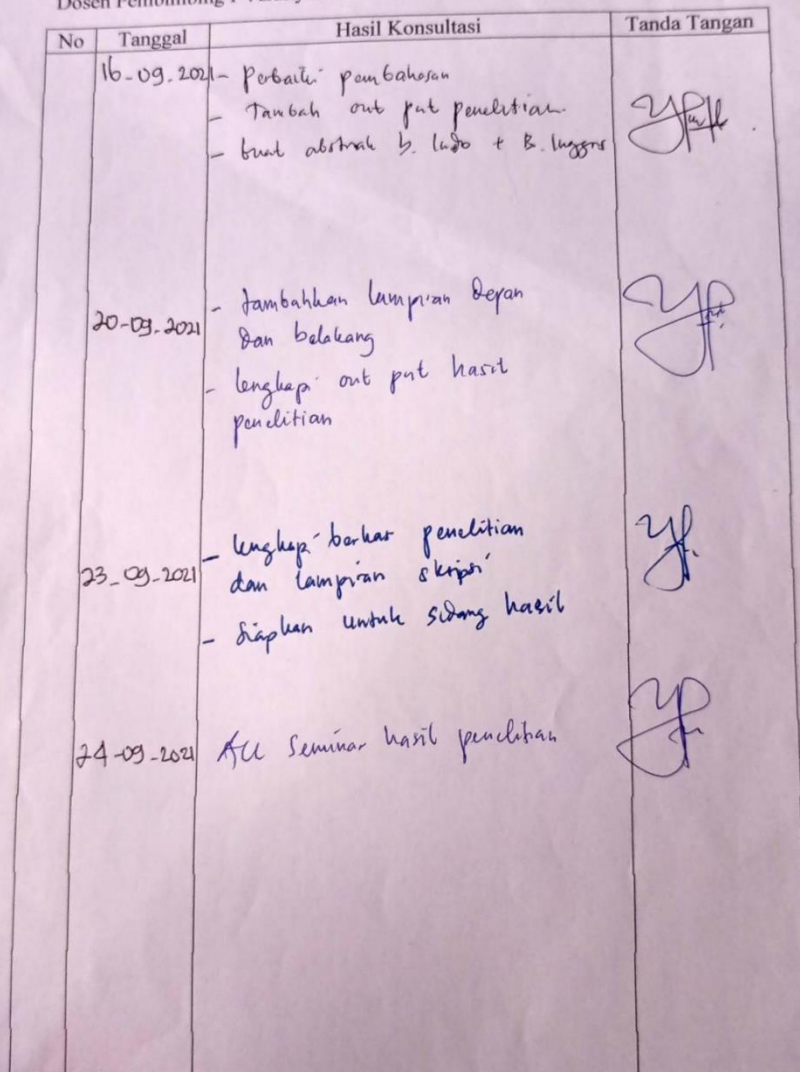 Dosen Pembimbing 1
No Tanggal Hasil Konsultasi Tanda Tangan
16-09-2021 - Perbaiki pembahasan
- Tambah out put penelitian
- buat abstrak b. Indo + B. Inggris
- tambahkan lampiran depan
20-09-2021 dan belakang
- lengkapi out put hasil
penelitian
- lengkapi berkas penelitian
23-09-2021 dan lampiran skripsi
- siapkan untuk sidang hasil
24-09-2021 Acc Seminar hasil penelitian